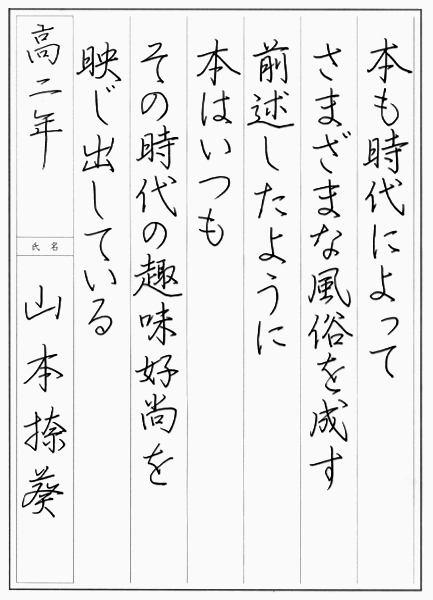 本も時代によって
さまざまな風俗を成す
前述したように
本はいつも
その時代の趣味好尚を
映じ出している
高二年
氏名
山本捺葵